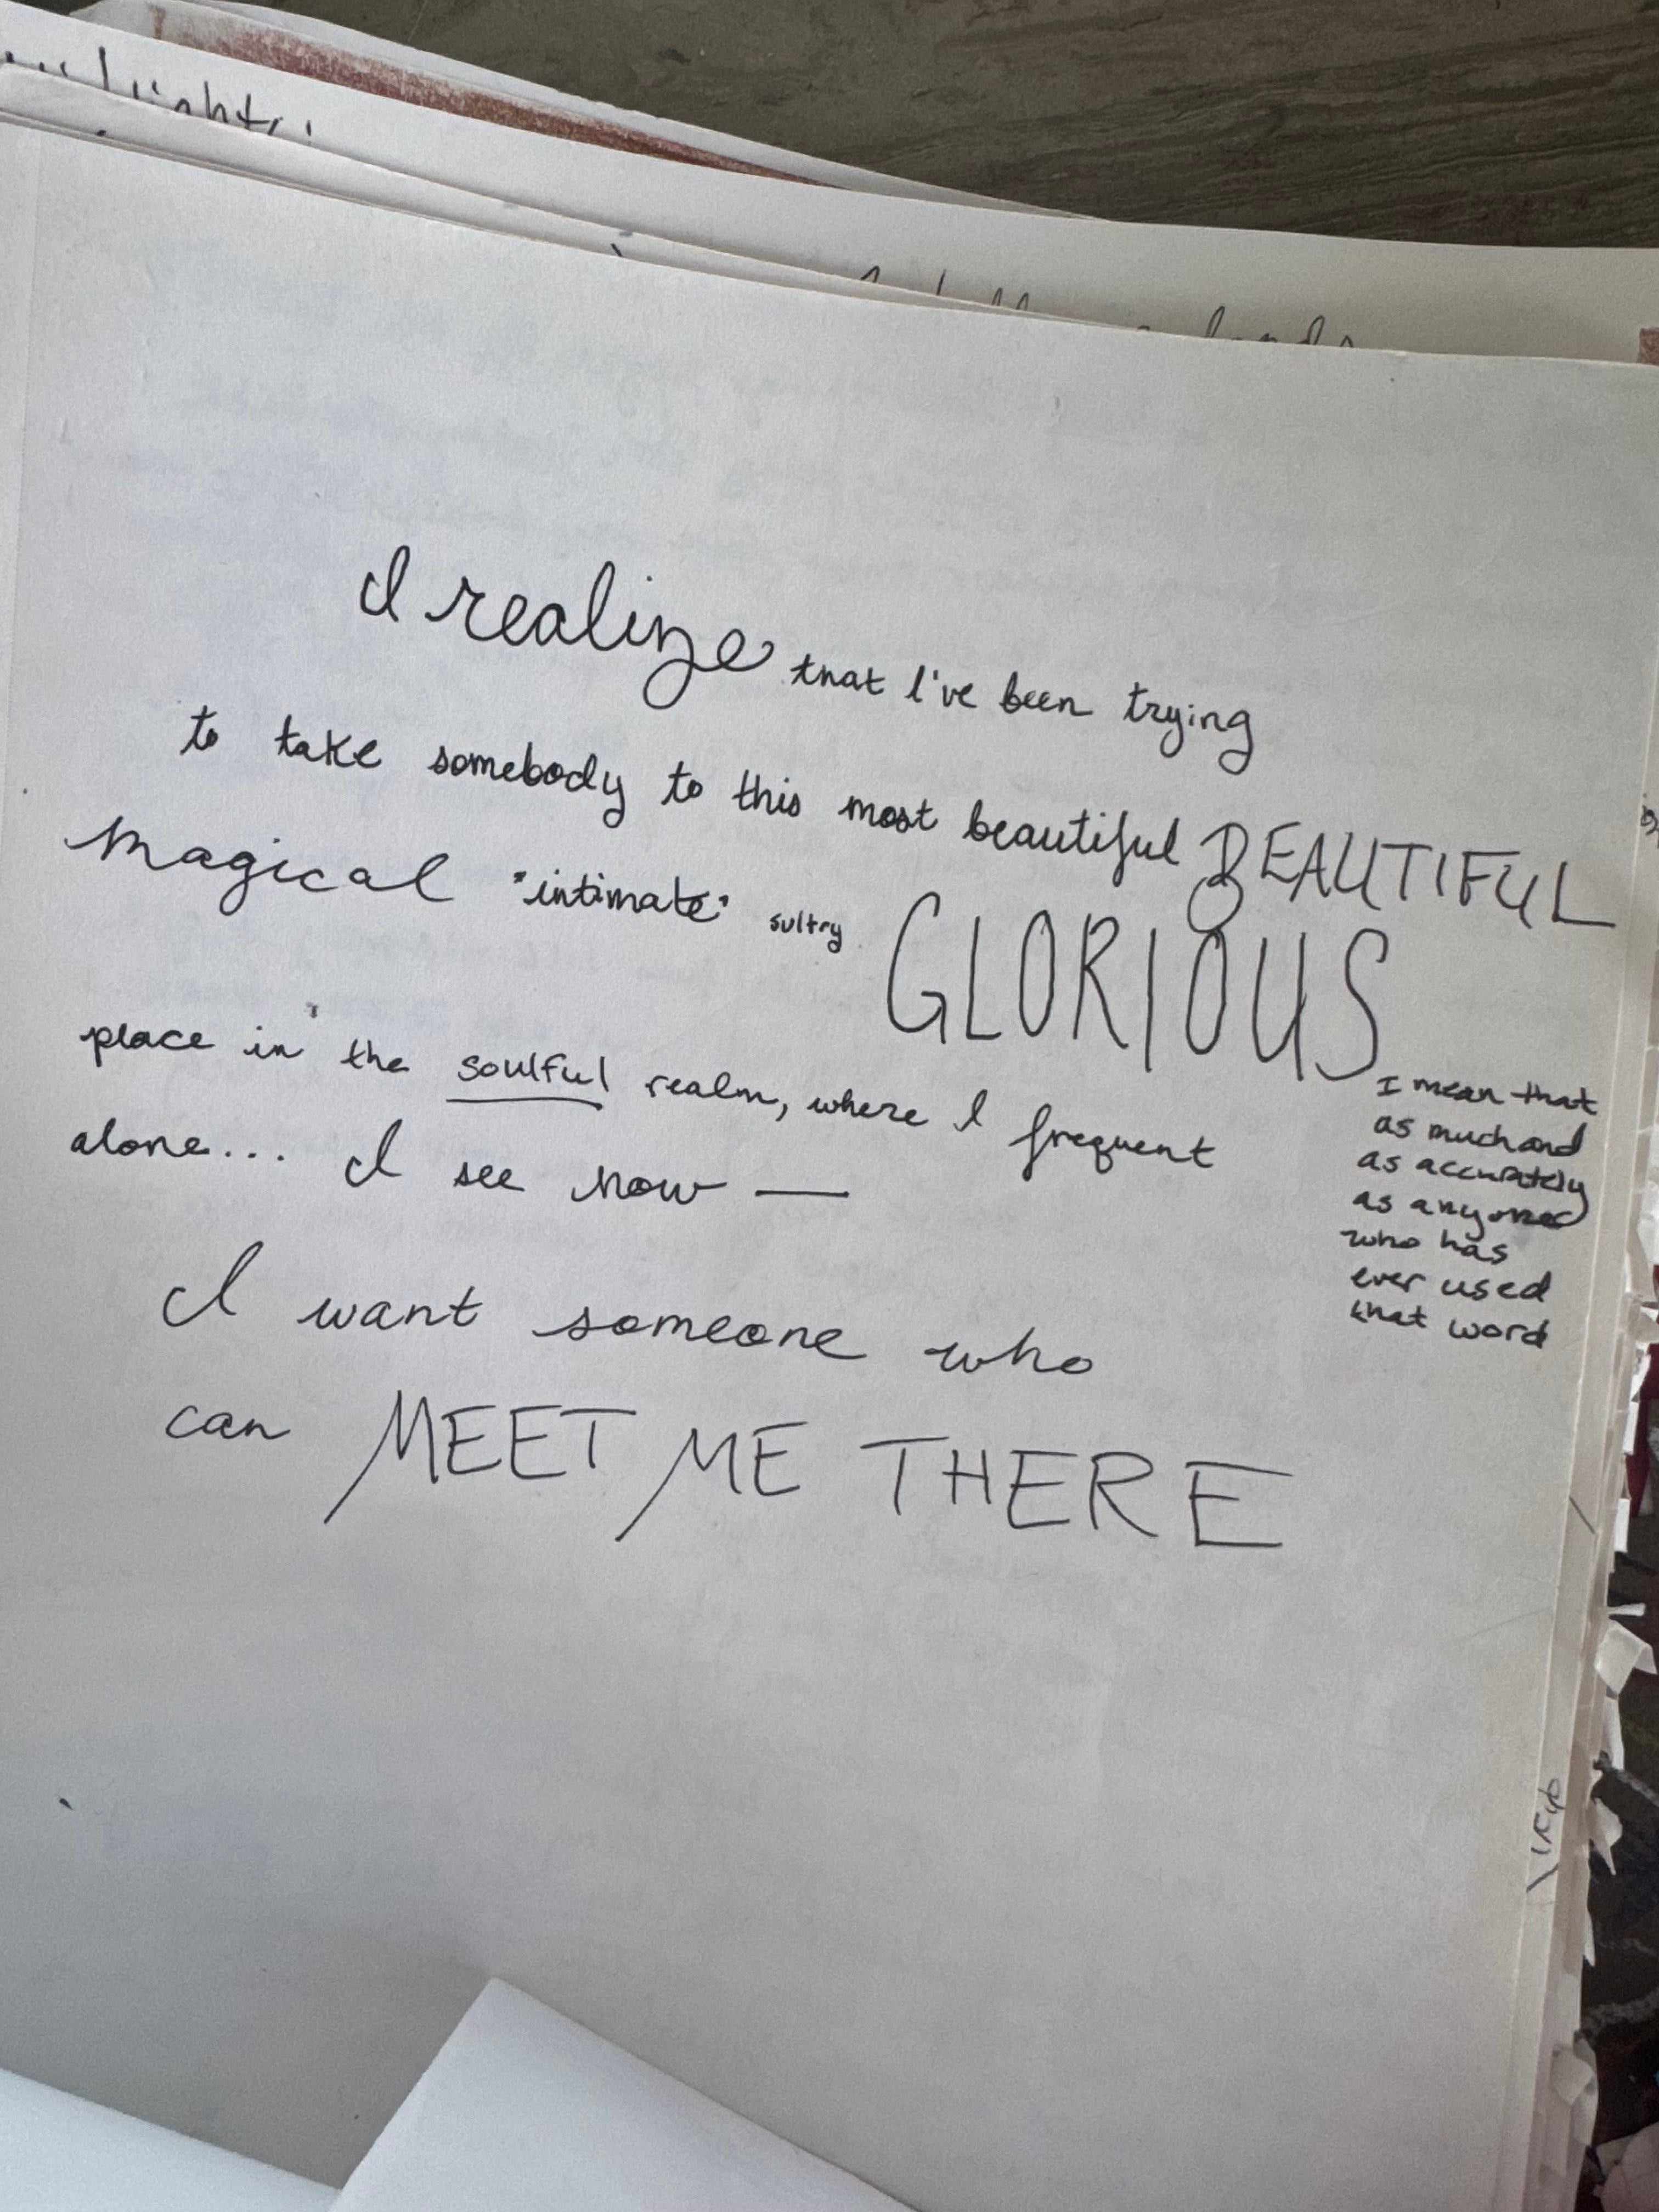 I realize that I've been trying
to take somebody to this most beautiful BEAUTIFUL
magical "intimate" sultry GLORIOUS
place in the soulful realm, where I frequent
alone... I see now —
I want someone who
can MEET ME THERE
I mean that
as much and
as accurately
as anyone
who has
ever used
that word